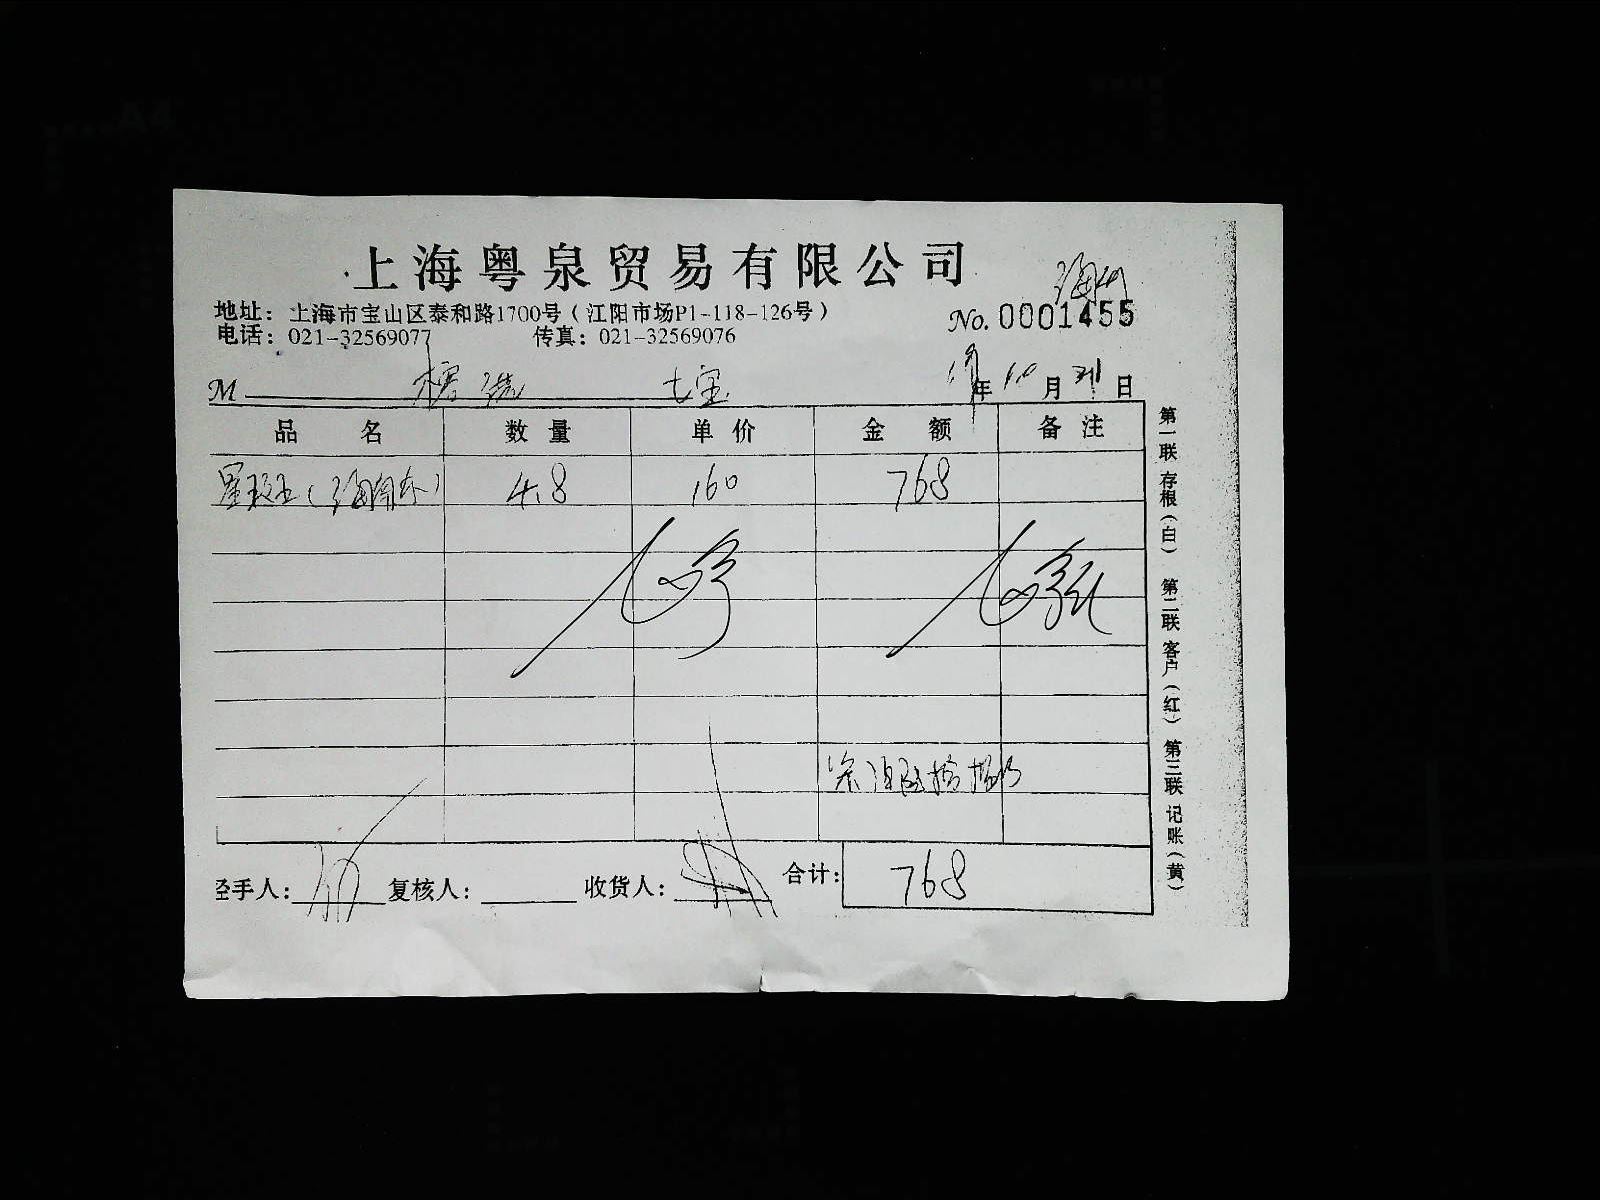 上海粤泉贸易有限公司
地址：上海市宝山区泰和路1700号（江阳市场P1-118-126号）
No. 0001455
电话：021-32569077 传真：021-32569076
M 七宝 19年10月31日
品名 数量 单价 金额 备注
星斑王(海南东) 4.8 160 768
柒佰陆拾捌
经手人： 复核人： 收货人： 合计： 768
第一联 存根（白） 第二联 客户（红） 第三联 记账（黄）